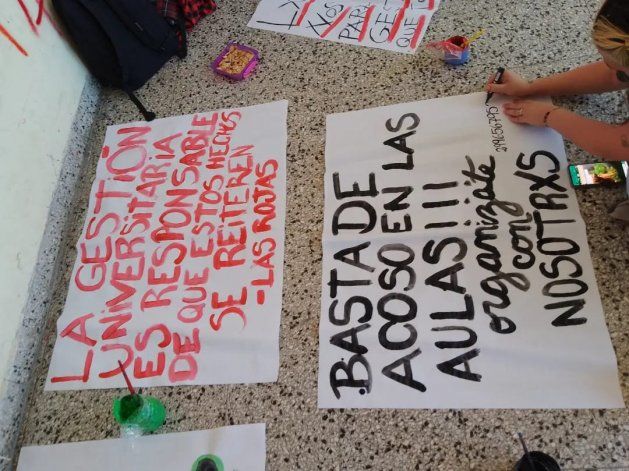 LA GESTIÓN
UNIVERSITARIA
ES RESPONSABLE
DE QUE ESTOS HECHOS
SE REITEREN
-LAS ROJAS
BASTA DE
ACOSO EN LAS
AULAS!!!
organizate
con
NOSOTRXS
PARA
GEST
QUE